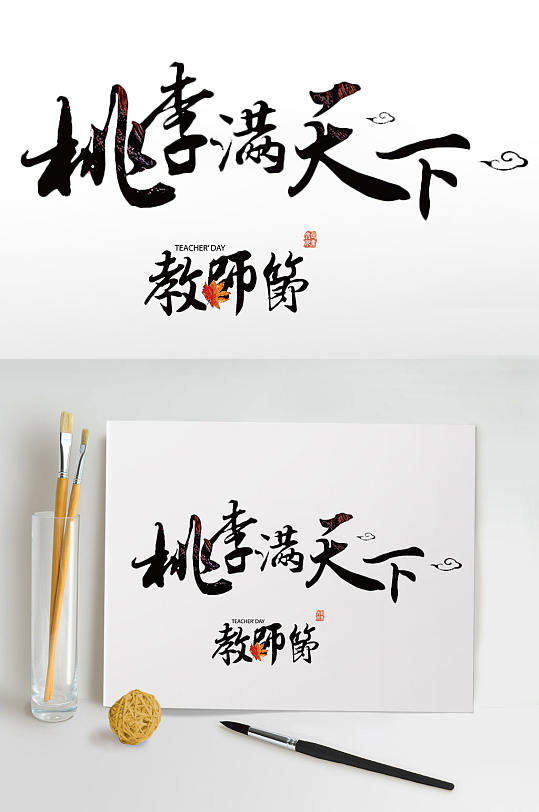 桃李满天下
TEACHER' DAY
教师節
桃李满天下
TEACHER' DAY
教师節